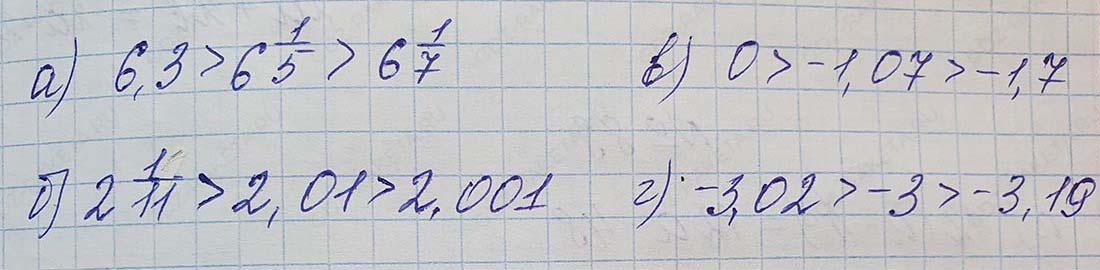 а) 6,3 > 6 1/5 > 6 1/7
в) 0 > -1,07 > -1,7
б) 2 1/11 > 2,01 > 2,001
г) -3,02 > -3 > -3,19